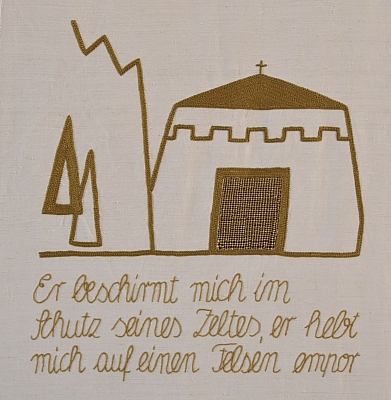 Er beschirmt mich im
Schutz seines Zeltes, er hebt
mich auf einen Felsen empor